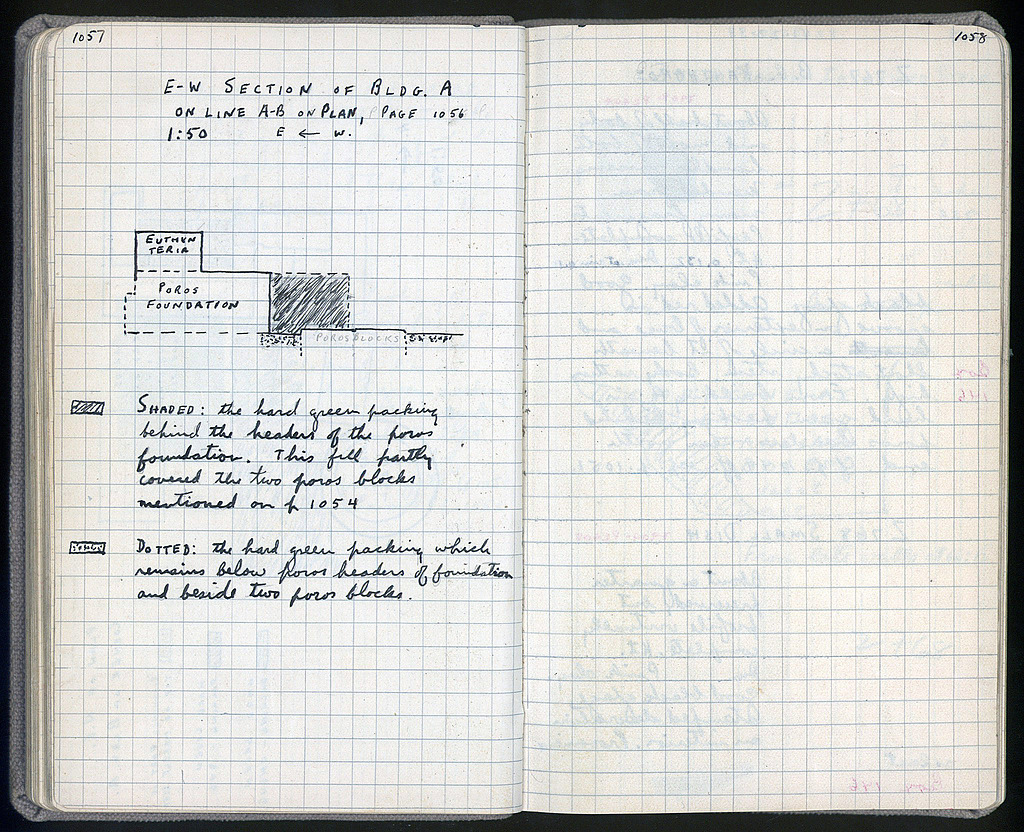 1057
E-W SECTION OF BLDG. A
ON LINE A-B ON PLAN, PAGE 1056
1:50 E ← W.
EUTHYN
TERIA
POROS
FOUNDATION
POROS BLOCKS
SHADED: the hard green packing
behind the headers of the poros
foundation. This fill partly
covered the two poros blocks
mentioned on p 1054
DOTTED: the hard green packing which
remains below poros headers of foundation
and beside two poros blocks.
1058